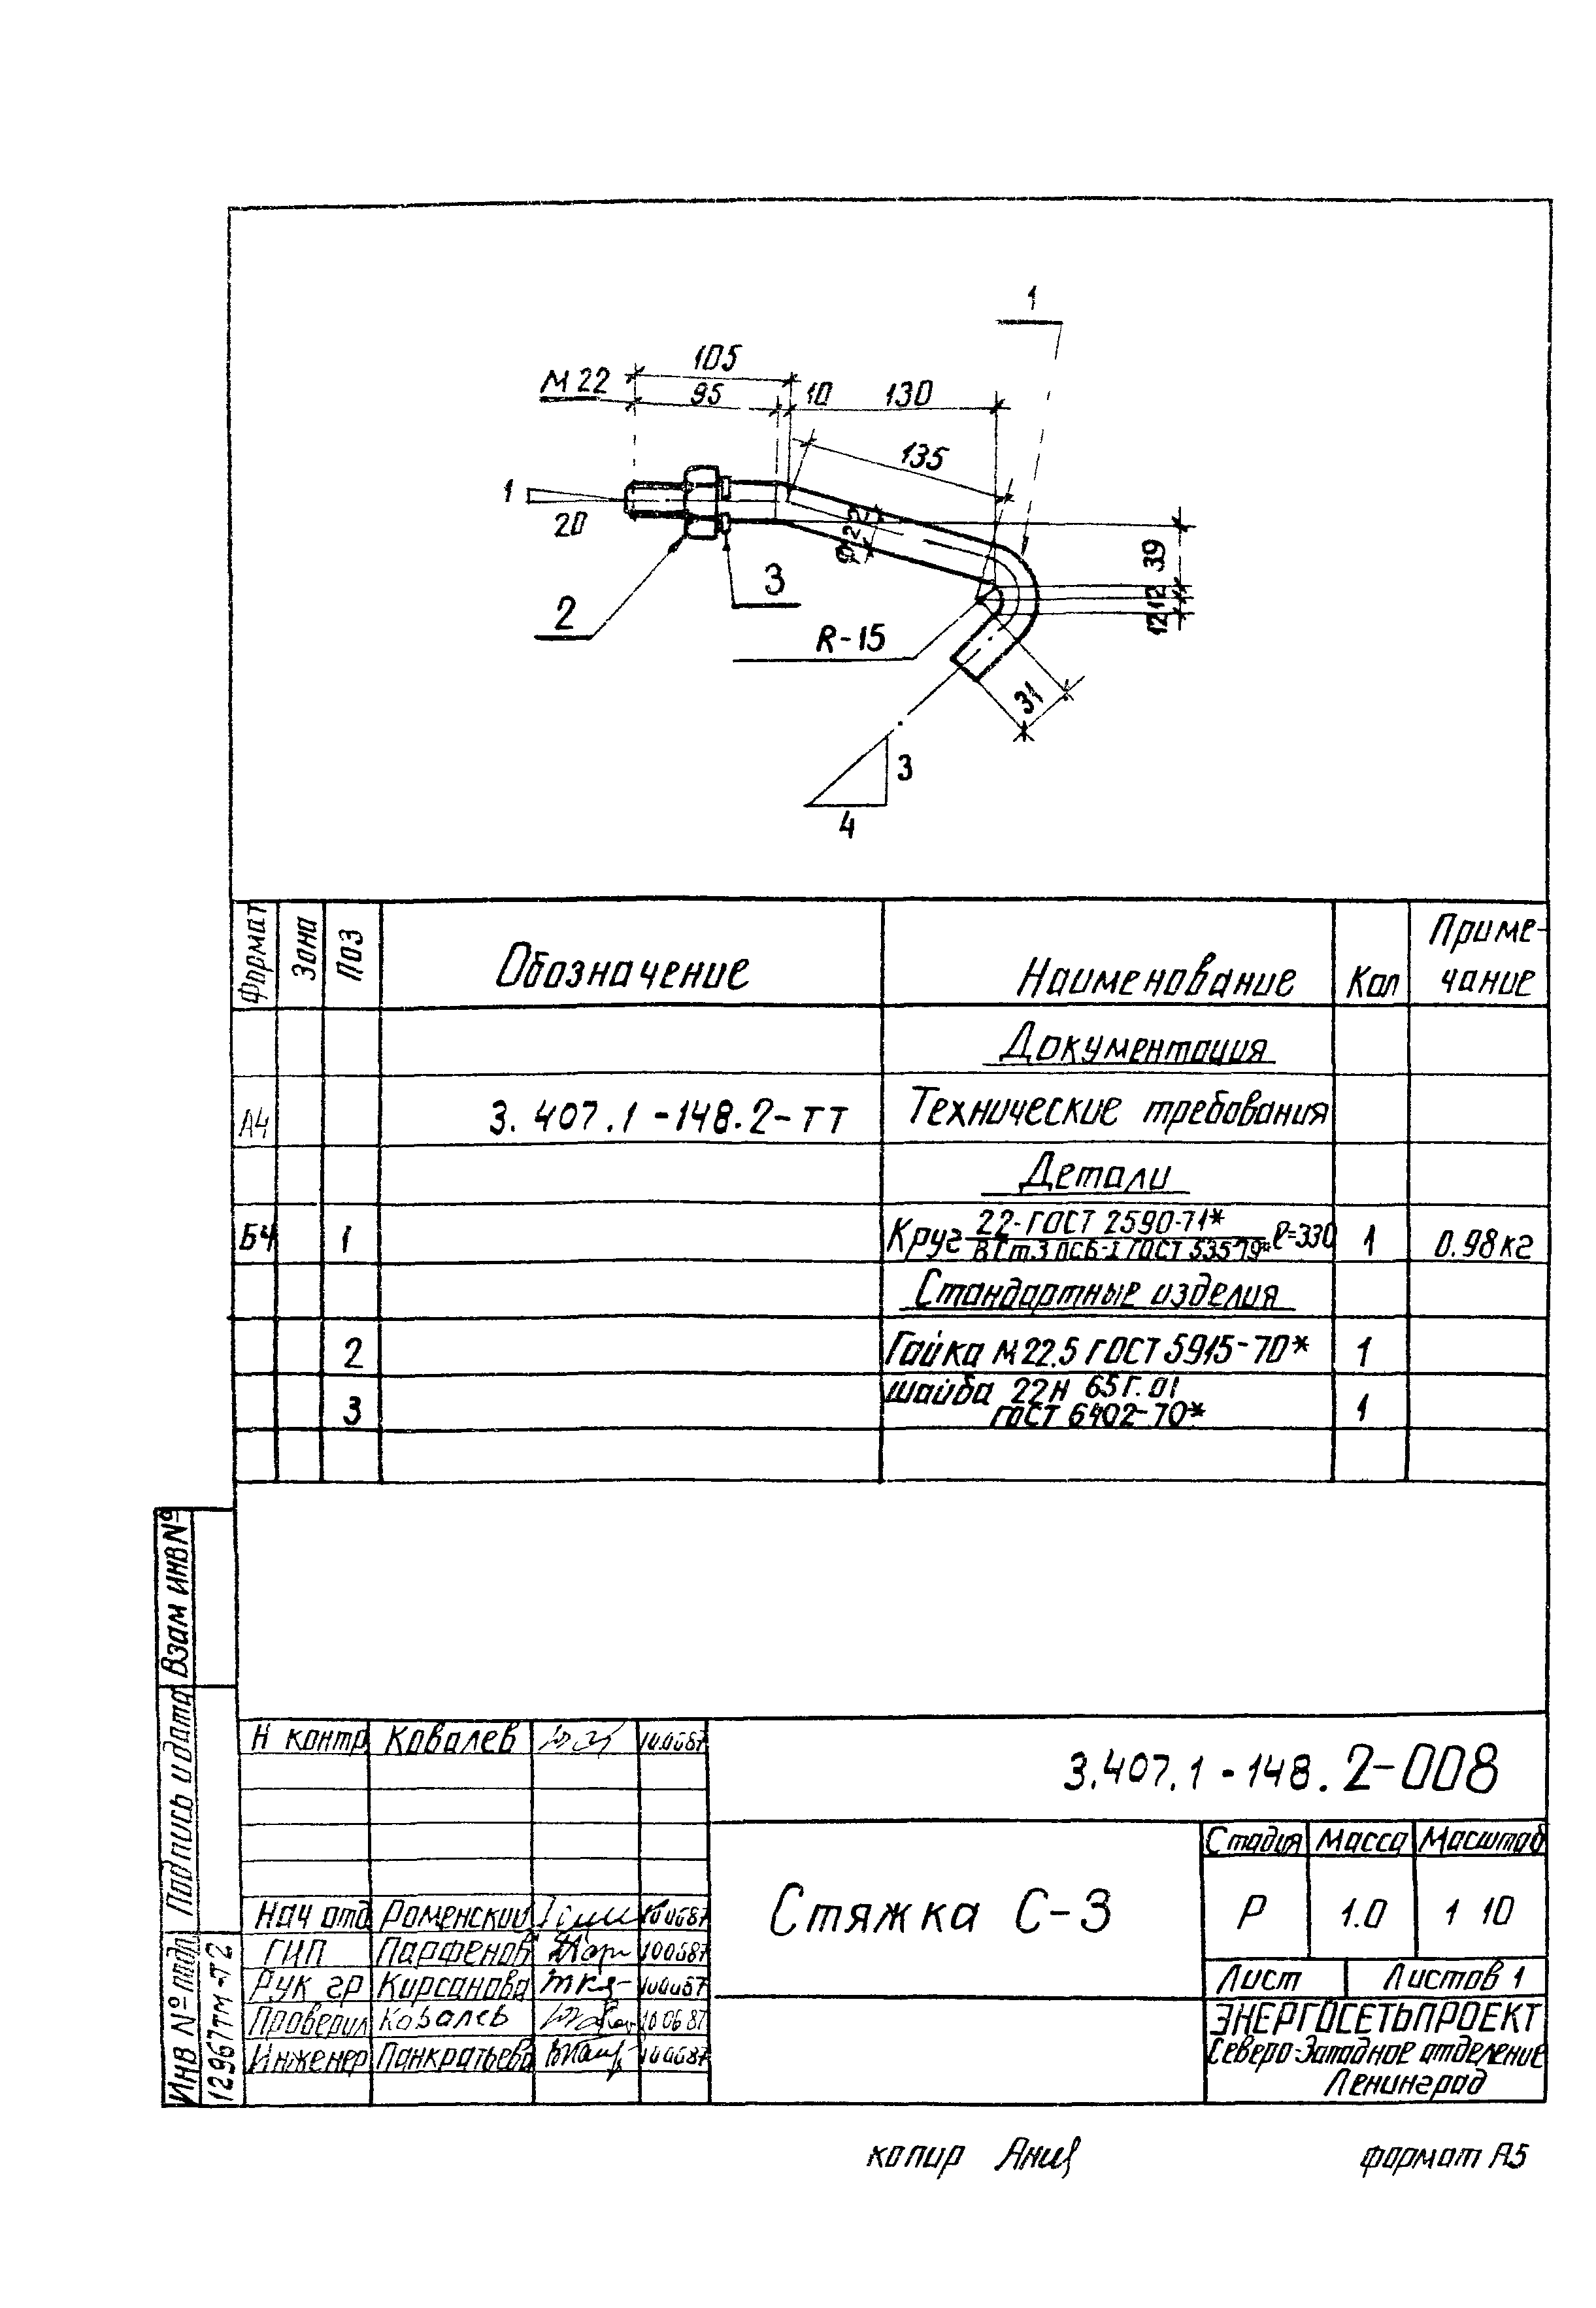 1
105
М 22
95
10
130
135
1
20
Ø 22
39
12
12
2
3
R-15
31
3
4
Формат
Зона
Поз
Обозначение
Наименование
Кол
Приме-
чание
Документация
А4
3.407.1-148.2-ТТ
Технические требования
Детали
Б4
1
Круг 22-ГОСТ 2590-71* / ВСт.3 пс6-I ГОСТ 535-79* ℓ=330
1
0.98кг
Стандартные изделия
2
Гайка М22.5 ГОСТ 5915-70*
1
3
шайба 22Н 65Г.01
ГОСТ 6402-70*
1
Взам инв №
Подпись и дата
Инв № подл
12967тм-т2
Н контр Ковалев 100687
3.407.1-148.2-008
Стадия Масса Масштаб
Стяжка С-3
Р 1.0 1 10
Нач отд Роменский 100687
ГИП Парфенов 100687
Рук гр Кирсанова 100687
Проверил Ковалев 100687
Инженер Панкратьева 100687
Лист Листов 1
ЭНЕРГОСЕТЬПРОЕКТ
Северо-Западное отделение
Ленинград
копир
формат А5